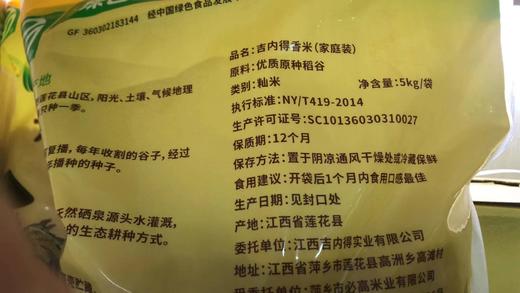 GF 360302183144 经中国绿色食品发展
莲花县山区，阳光、土壤、气候地理
只种一季。
播，每年收割的谷子，经过
播种的种子。
天然硒泉源头水灌溉，
的生态耕种方式。
品名：吉内得香米（家庭装）
原料：优质原种稻谷
类别：籼米 净含量：5kg/袋
执行标准：NY/T419-2014
生产许可证号：SC10136030310027
保质期：12个月
保存方法：置于阴凉通风干燥处或冷藏保鲜
食用建议：开袋后1个月内食用口感最佳
生产日期：见封口处
产地：江西省莲花县
委托单位：江西吉内得实业有限公司
地址：江西省萍乡市莲花县高洲乡高滩村
受委托单位：萍乡市必高米业有限公司